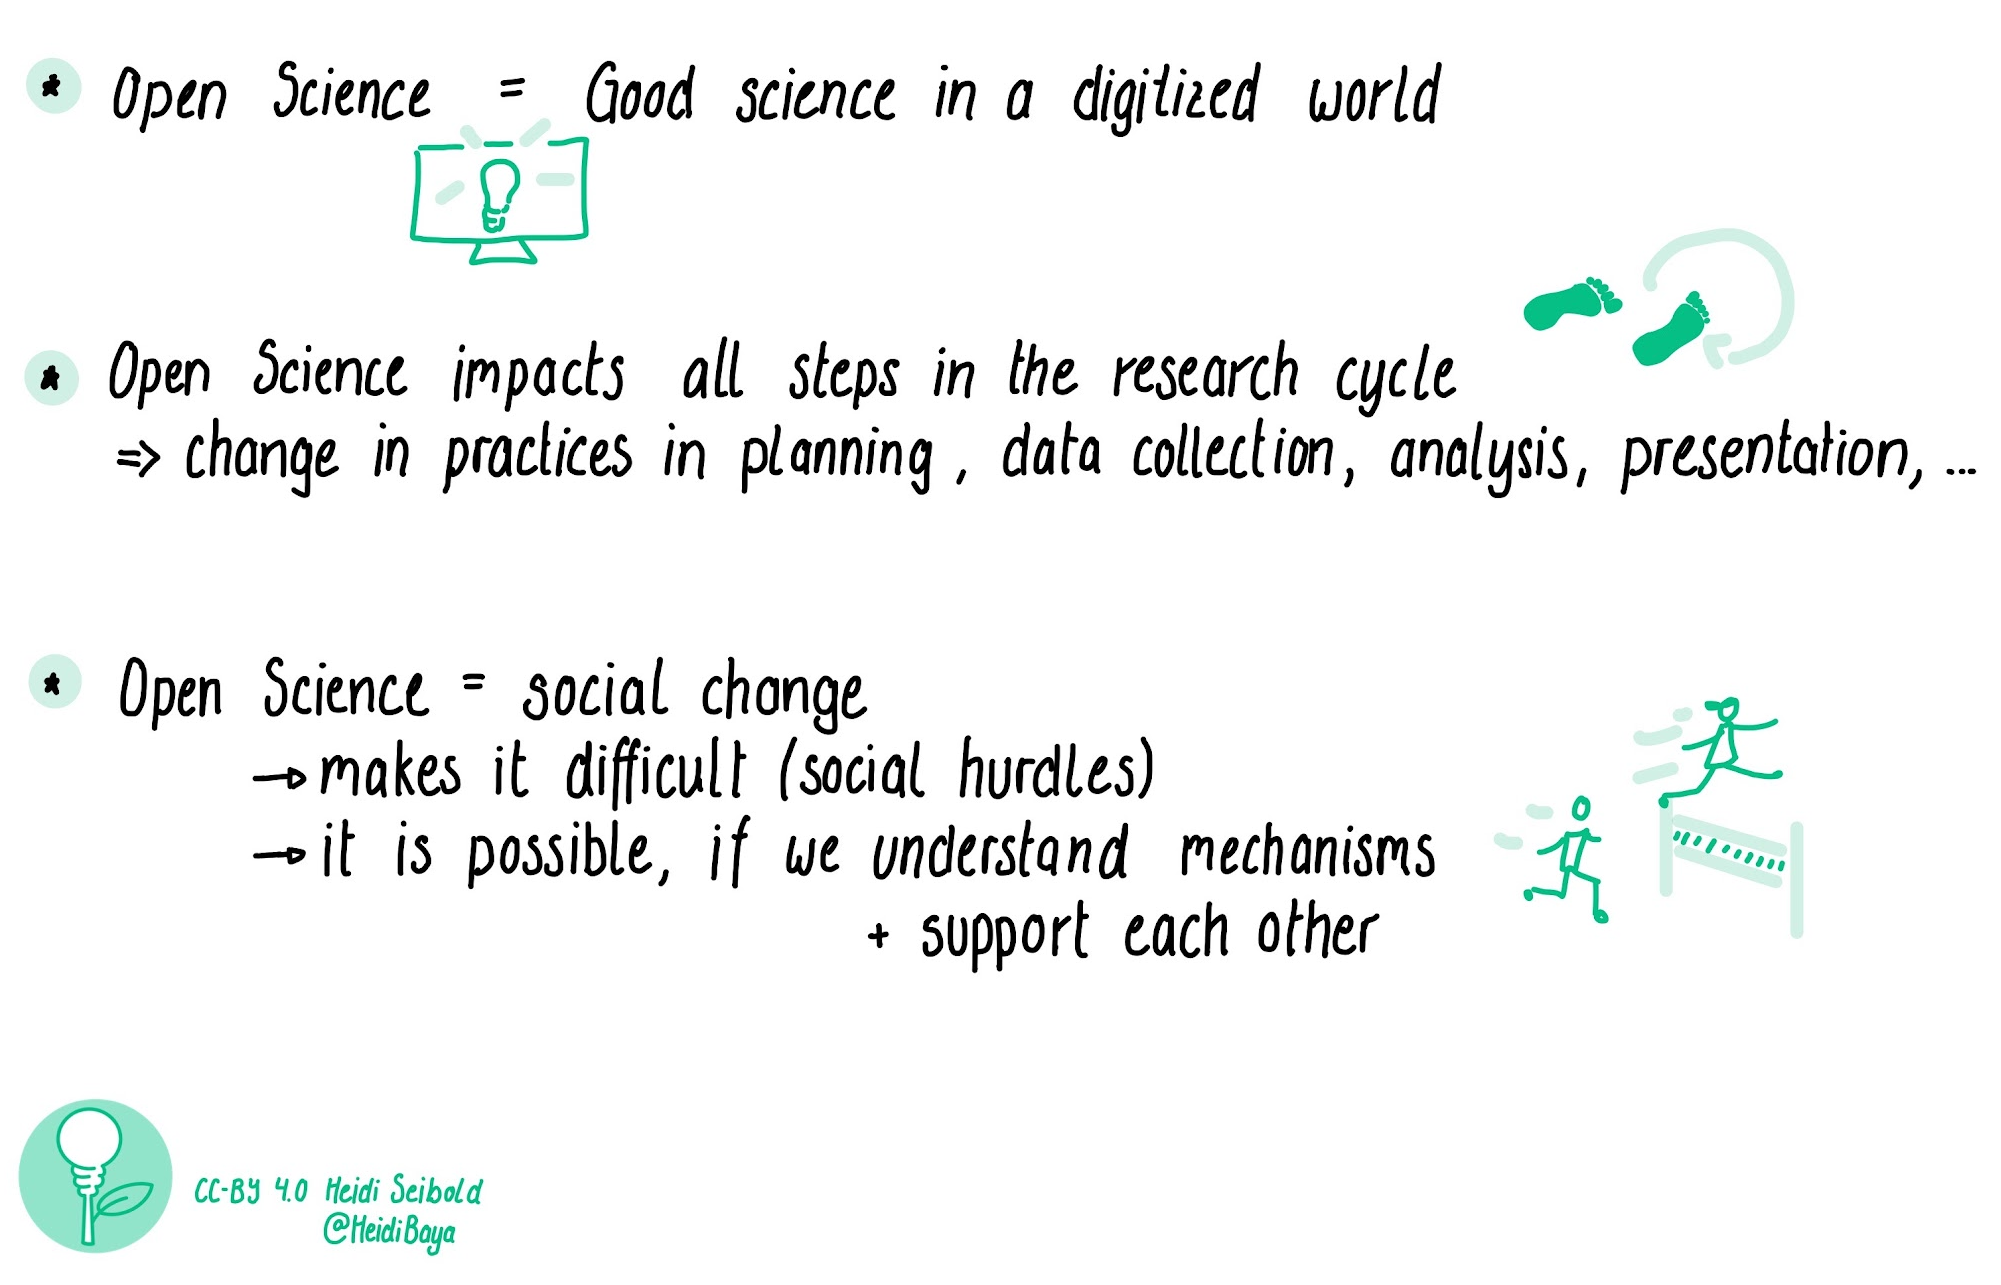 * Open Science = Good science in a digitized world
* Open Science impacts all steps in the research cycle
=> change in practices in planning, data collection, analysis, presentation, ...
* Open Science = social change
→ makes it difficult (social hurdles)
→ it is possible, if we understand mechanisms
+ support each other
CC-BY 4.0 Heidi Seibold
@HeidiBaya